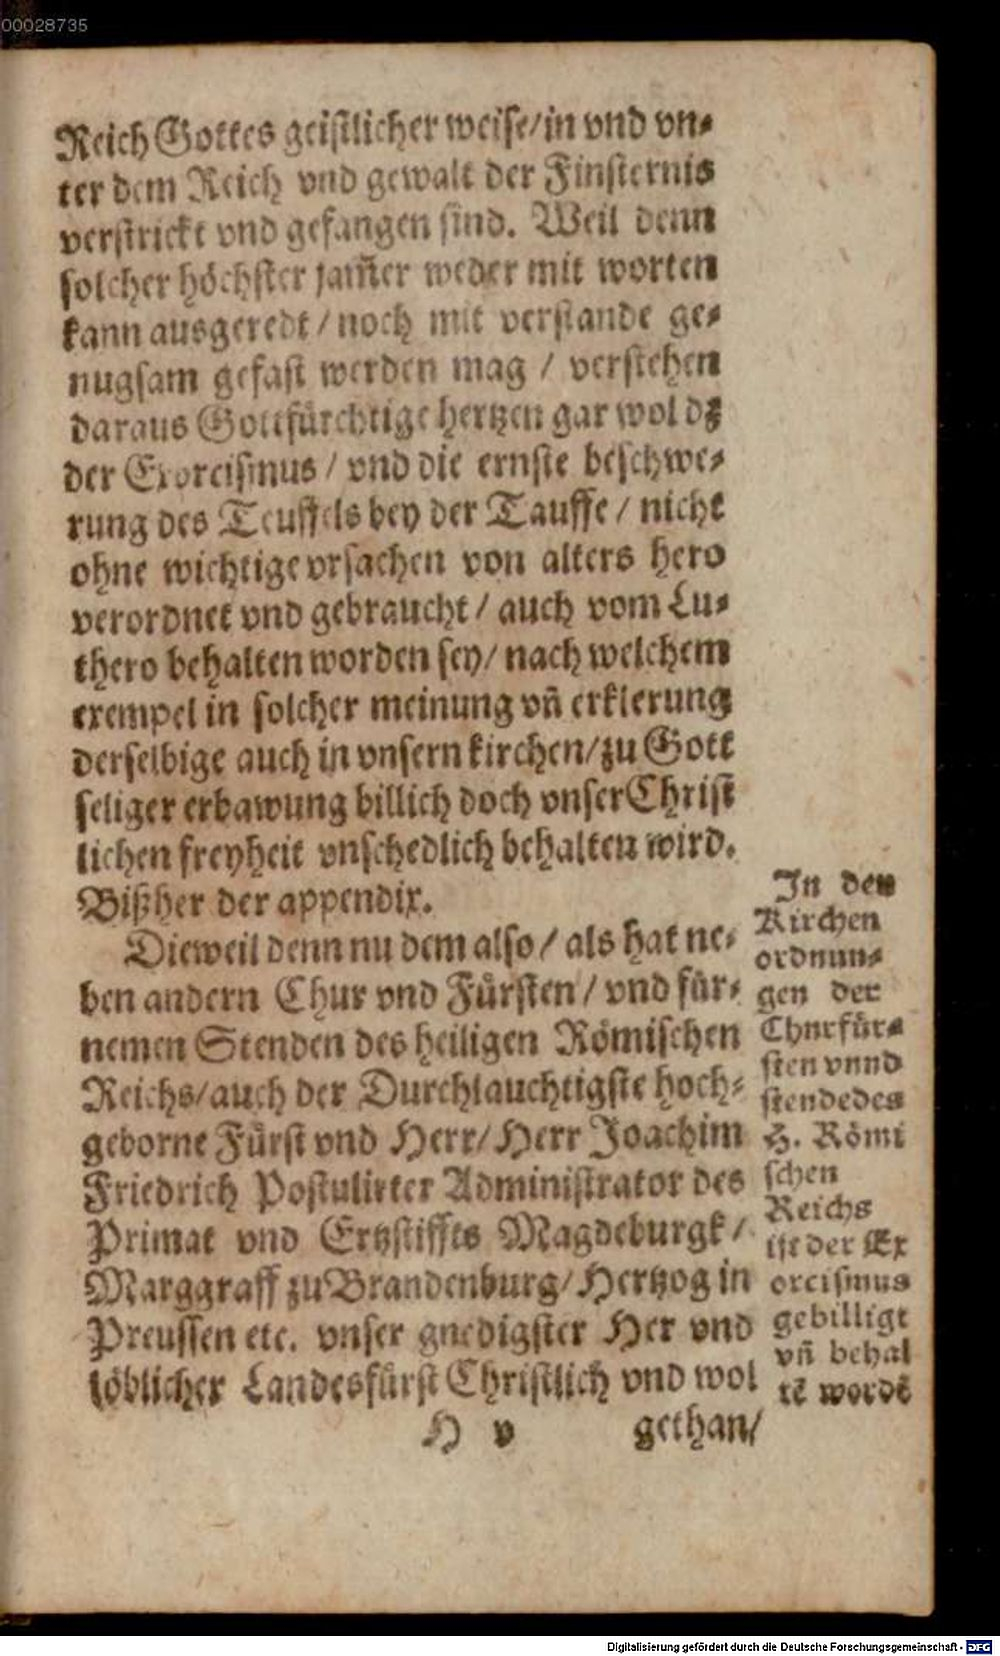 00028735
Reich Gottes geistlicher weise/in vnd vn⸗
ter dem Reich vnd gewalt der Finsternis
verstrickt vnd gefangen sind. Weil denn
solcher höchster jam̃er weder mit worten
kann ausgeredt / noch mit verstande ge⸗
nugsam gefast werden mag / verstehen
daraus Gottfürchtige hertzen gar wol dz
der Exorcismus / vnd die ernste beschwe⸗
rung des Teuffels bey der Tauffe / nicht
ohne wichtige vrsachen von alters hero
verordnet vnd gebraucht / auch vom Lu⸗
thero behalten worden sey/ nach welchem
exempel in solcher meinung vñ erklerung
derselbige auch in vnsern kirchen/zu Gott
seliger erbawung billich doch vnser Christ
lichen freyheit vnschedlich behalten wird.
Bißher der appendix.
Dieweil denn nu dem also / als hat ne⸗
ben andern Chur vnd Fürsten / vnd für⸗
nemen Stenden des heiligen Römischen
Reichs/auch der Durchlauchtigste hoch⸗
geborne Fürst vnd Herr/ Herr Joachim
Friedrich Postulirter Administrator des
Primat vnd Ertzstiffts Magdeburgk /
Marggraff zu Brandenburg/ Hertzog in
Preussen etc. vnser gnedigster Her vnd
löblicher Landesfürst Christlich vnd wol
H v gethan/
In den
Kirchen
ordnun⸗
gen der
Churfür⸗
sten vnnd
stendedes
H. Römi
schen
Reichs
ist der Ex
orcismus
gebilligt
vñ behal
tẽ wordẽ
Digitalisierung gefördert durch die Deutsche Forschungsgemeinschaft - DFG